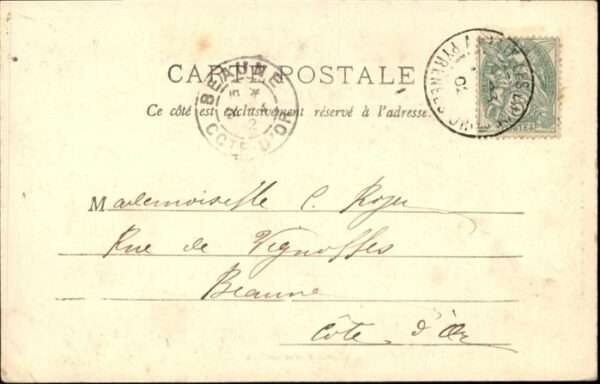 CARTE POSTALE
Ce côté est exclusivement réservé à l'adresse.
BEAUNE
COTE D'OR
PYRENEES
POSTES
Mademoiselle C. Royer
Rue de Vignolles
Beaune
Côte d'Or